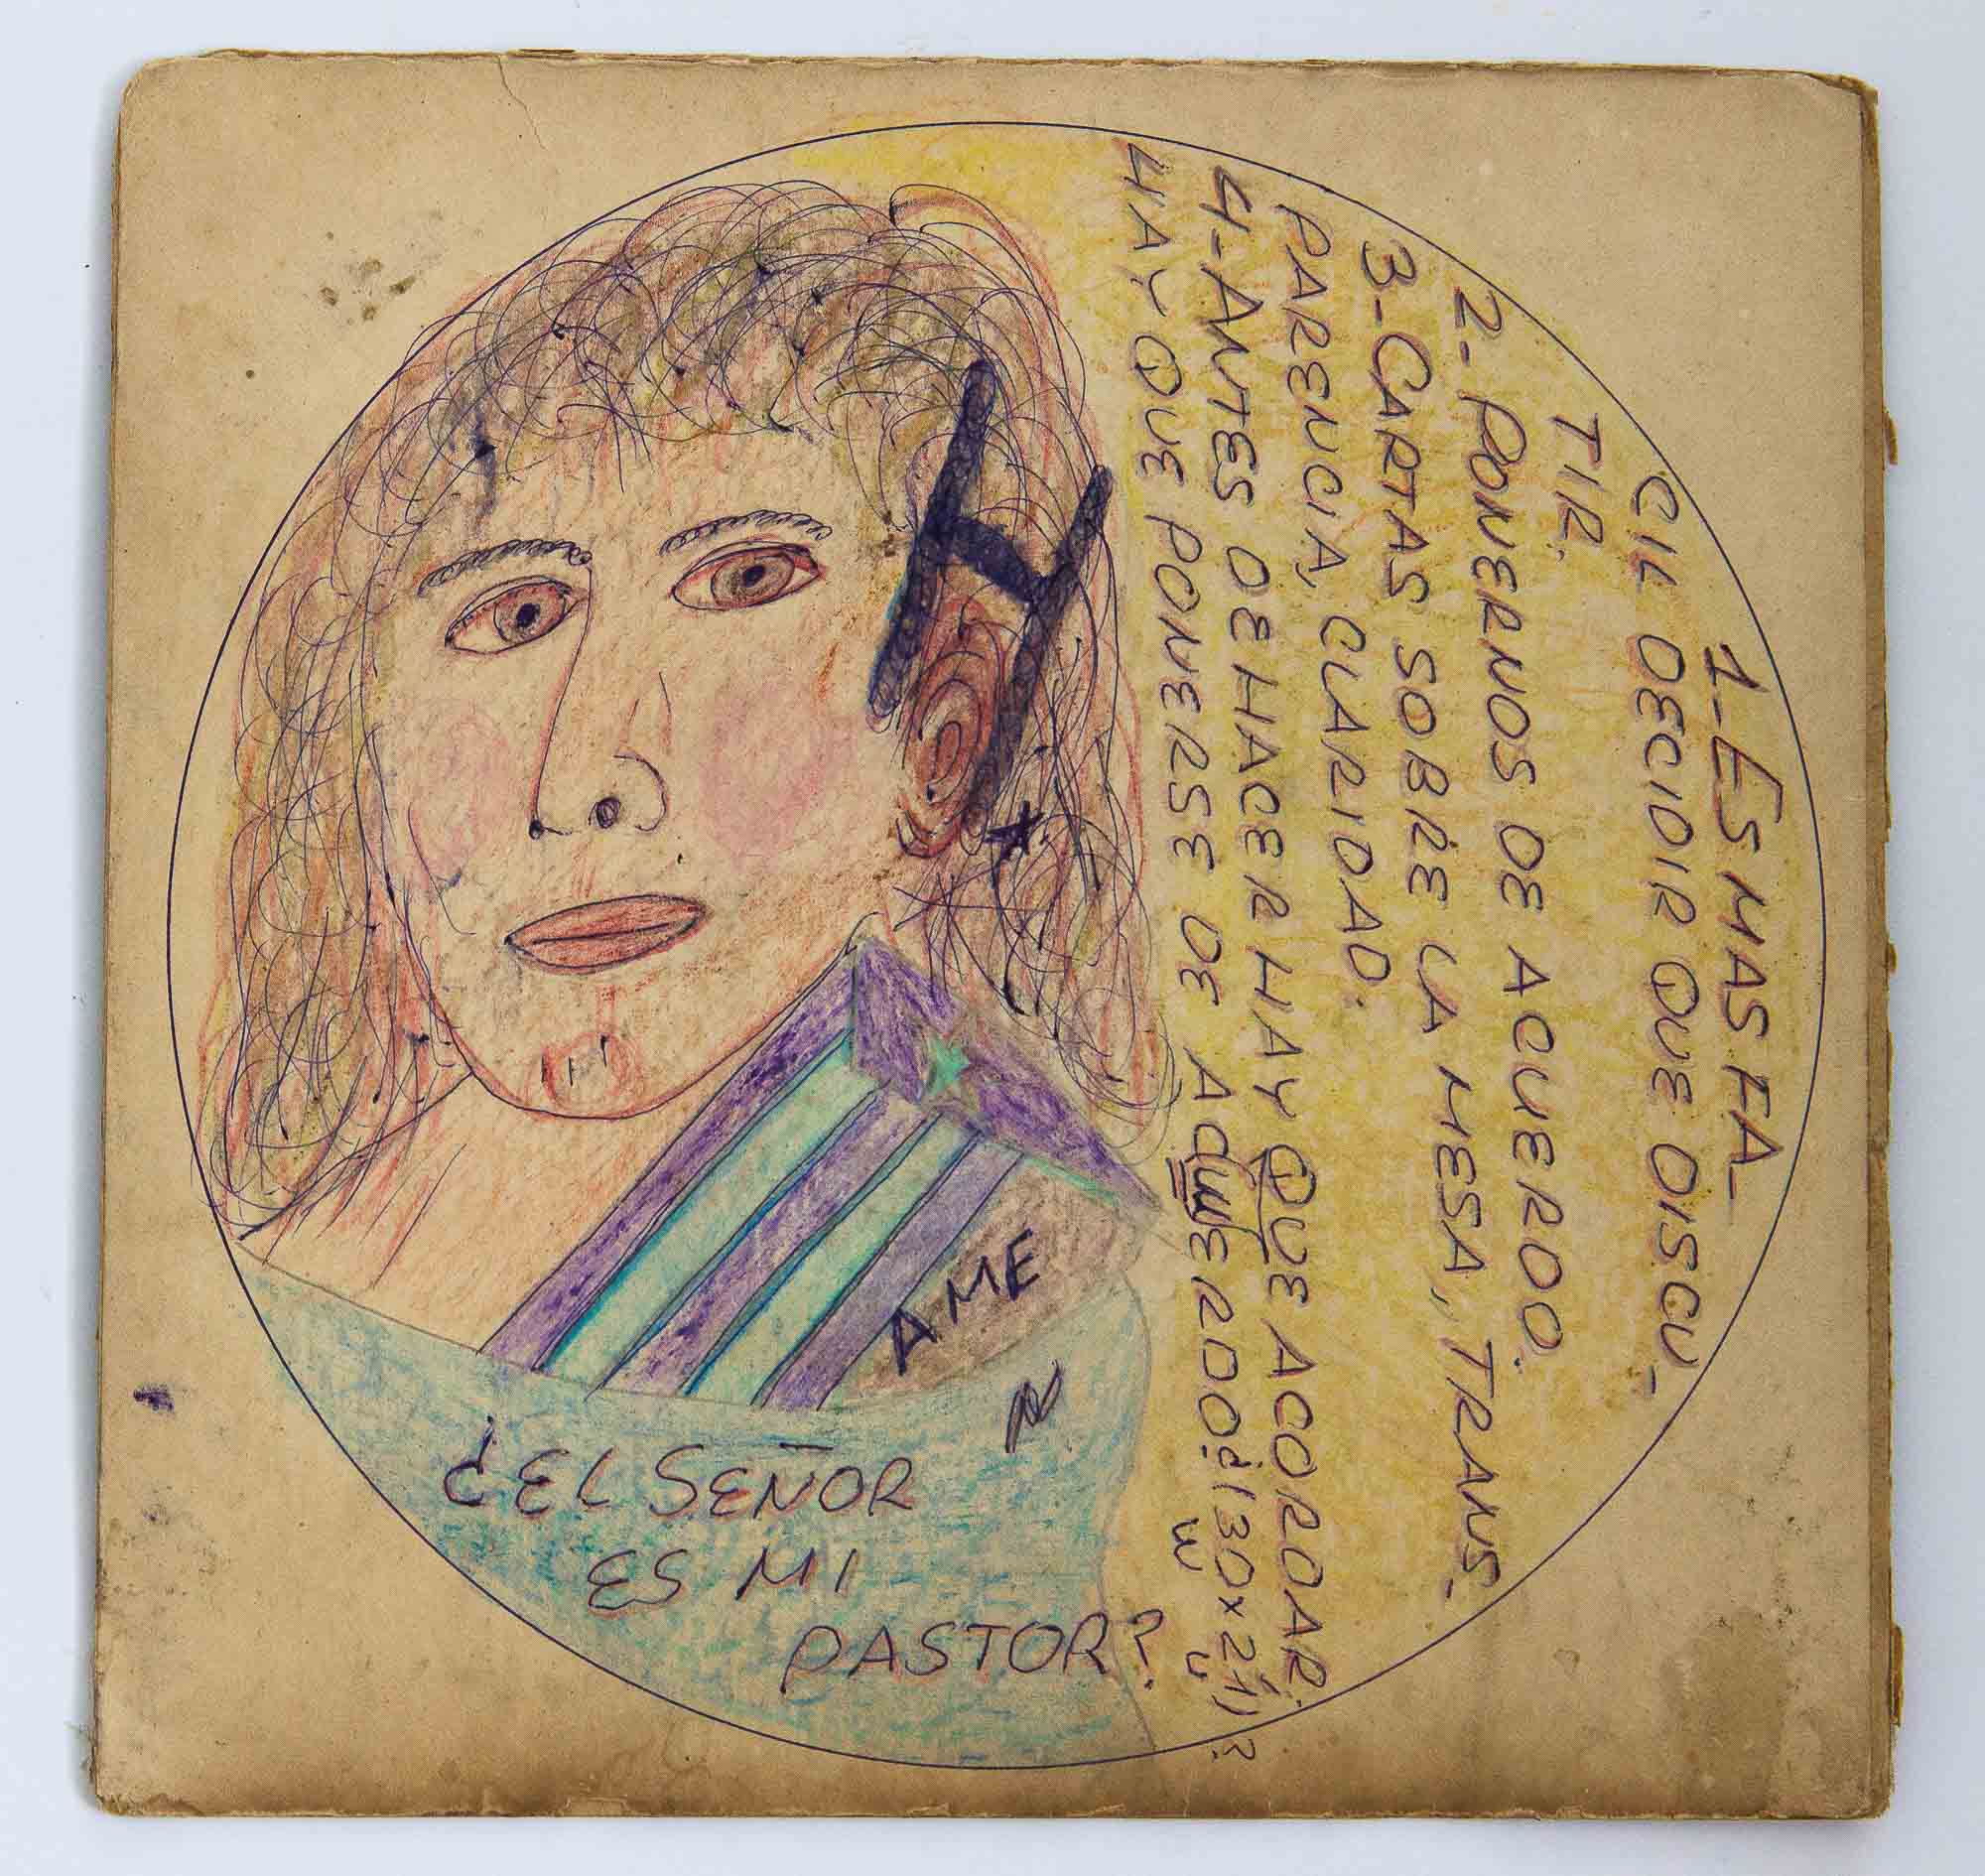 1- ES MAS FA-
CIL DECIDIR QUE DISCU-
TIR.
2- PONERNOS DE ACUERDO.
3- CARTAS SOBRE LA MESA,, TRANS-
PARENCIA, CLARIDAD.
4- ANTES DE HACER HAY QUE ACORDAR.
HAY QUE PONERSE DE ACUERDO
H
AME
N
¿EL SEÑOR
ES MI
PASTOR?